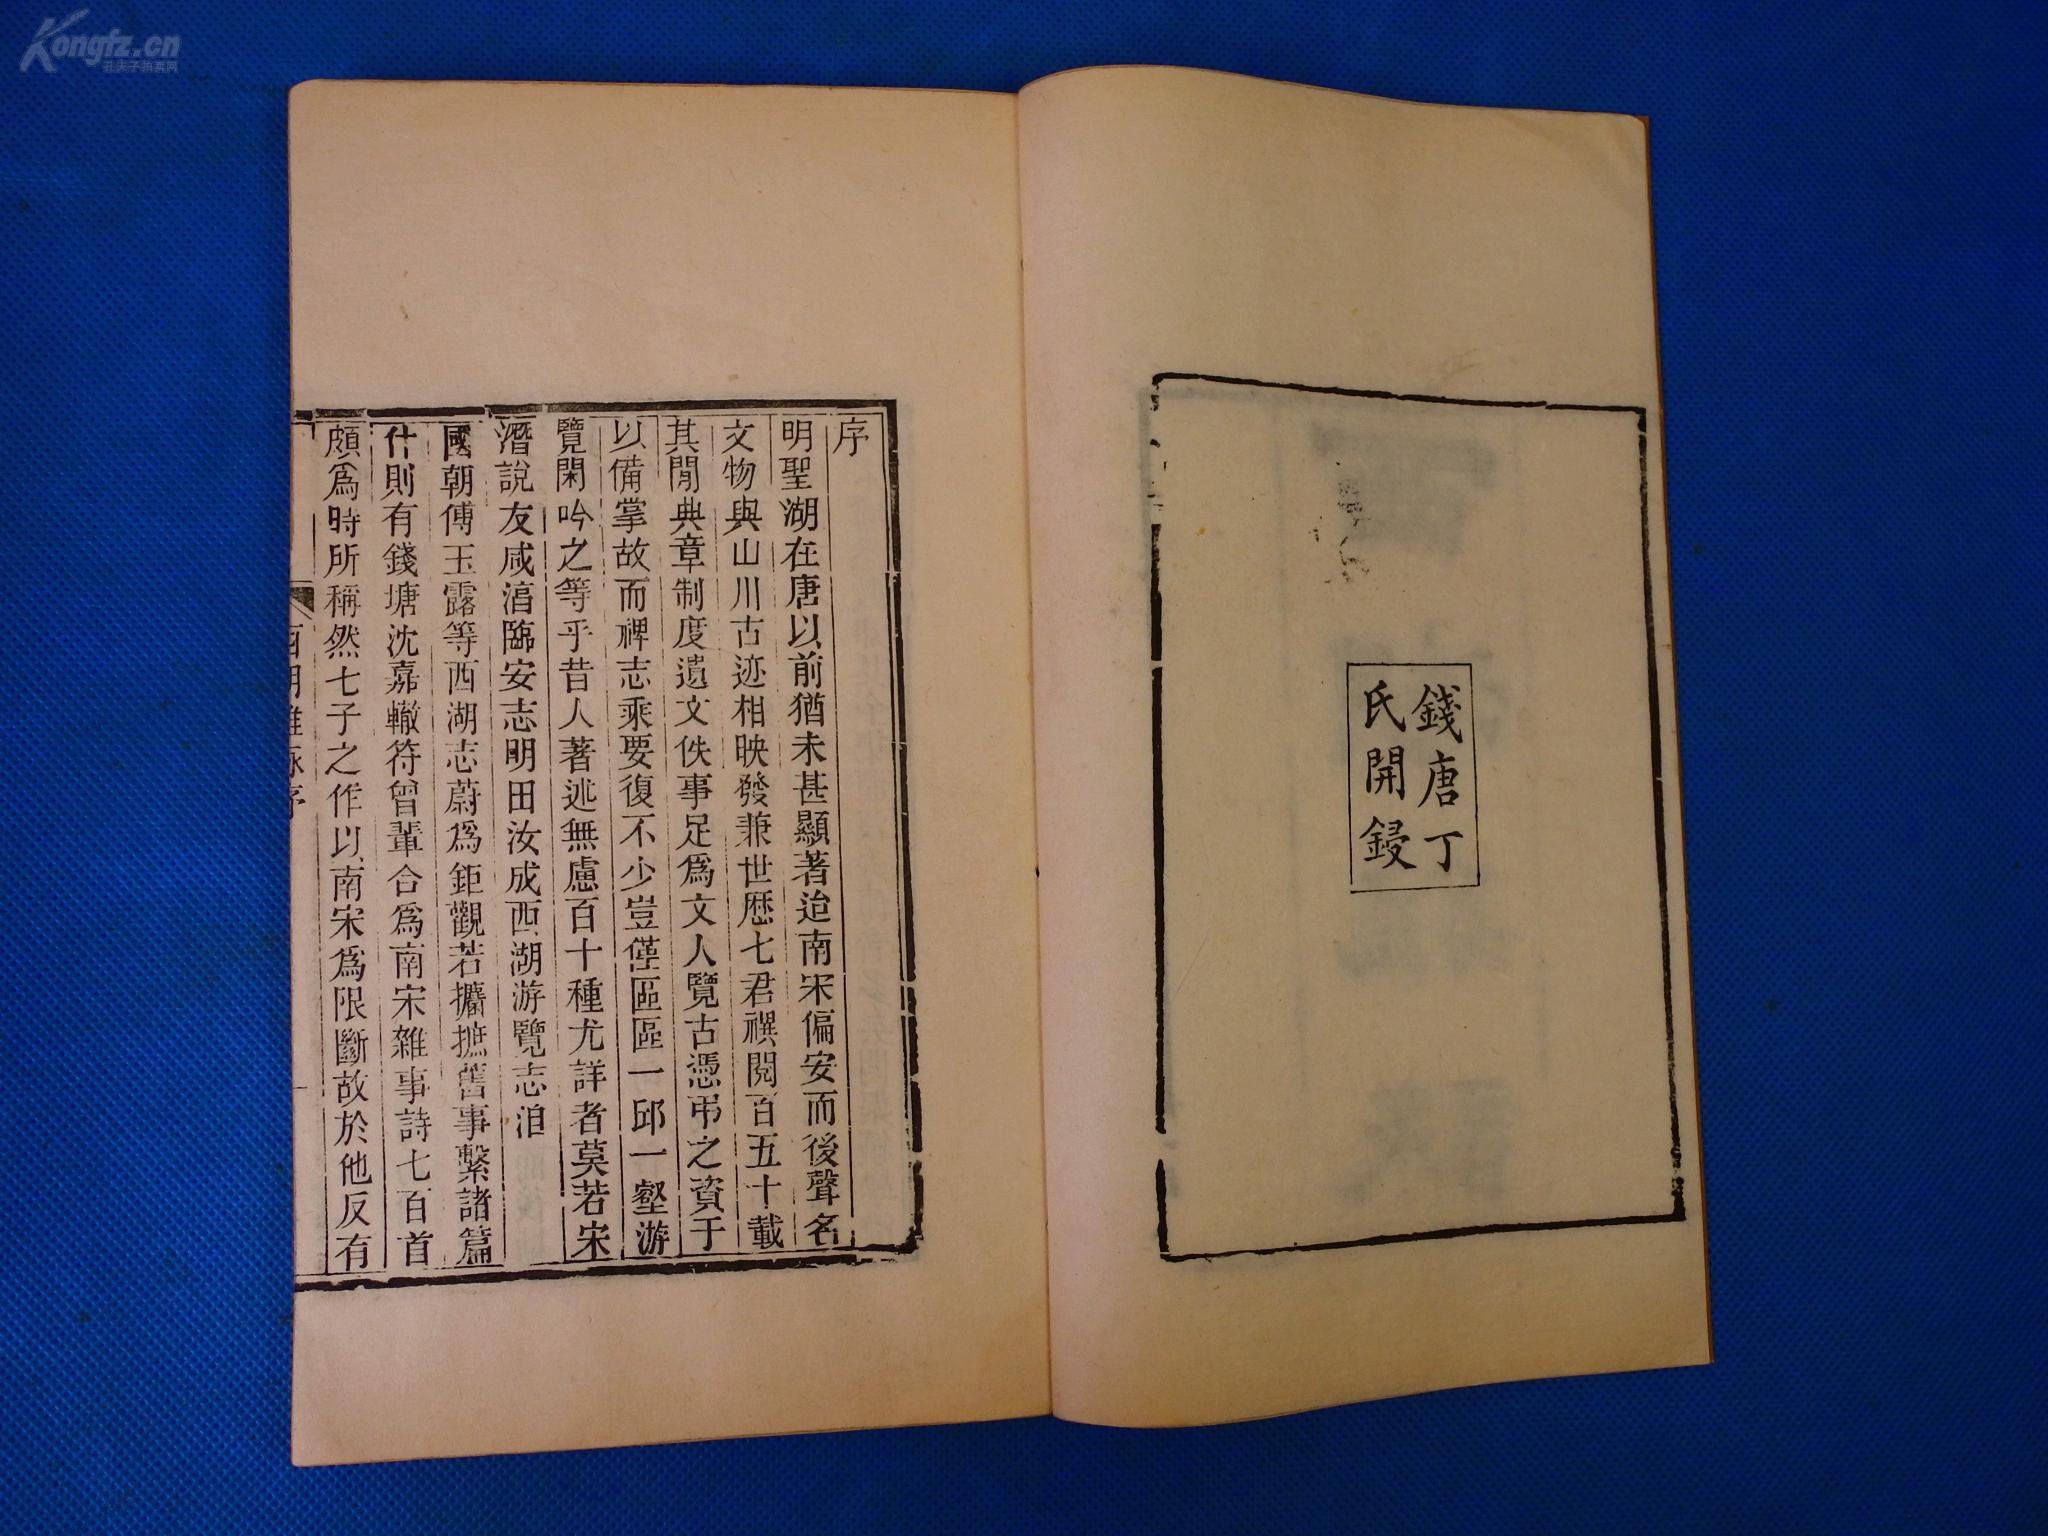 Kongfz.cn
孔夫子拍卖网
錢唐丁
氏開鋟
序
明聖湖在唐以前猶未甚顯著迨南宋偏安而後聲名
文物與山川古迹相映發兼世歷七君禩閱百五十載
其閒典章制度遺文佚事足爲文人覽古憑弔之資于
以備掌故而裨志乘要復不少豈僅區區一邱一壑游
覽閑吟之等乎昔人著述無慮百十種尤詳者莫若宋
潛說友咸淳臨安志明田汝成西湖游覽志洎
國朝傅玉露等西湖志蔚爲鉅觀若攟摭舊事繫諸篇
什則有錢塘沈嘉轍符曾輩合爲南宋雜事詩七百首
頗爲時所稱然七子之作以南宋爲限斷故於他反有
序